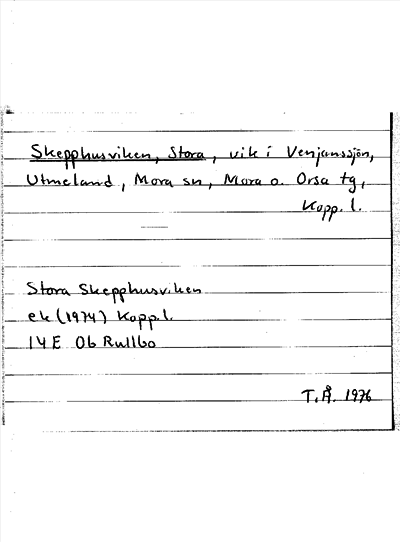 Skepphusviken, Stora, vik i Venjanssjön,
Utmeland, Mora sn, Mora o. Orsa tg,
Kopp. l.
Stora Skepphusviken
ek (1974) Kopp. l.
14E 0b Rullbo
T.Å. 1976